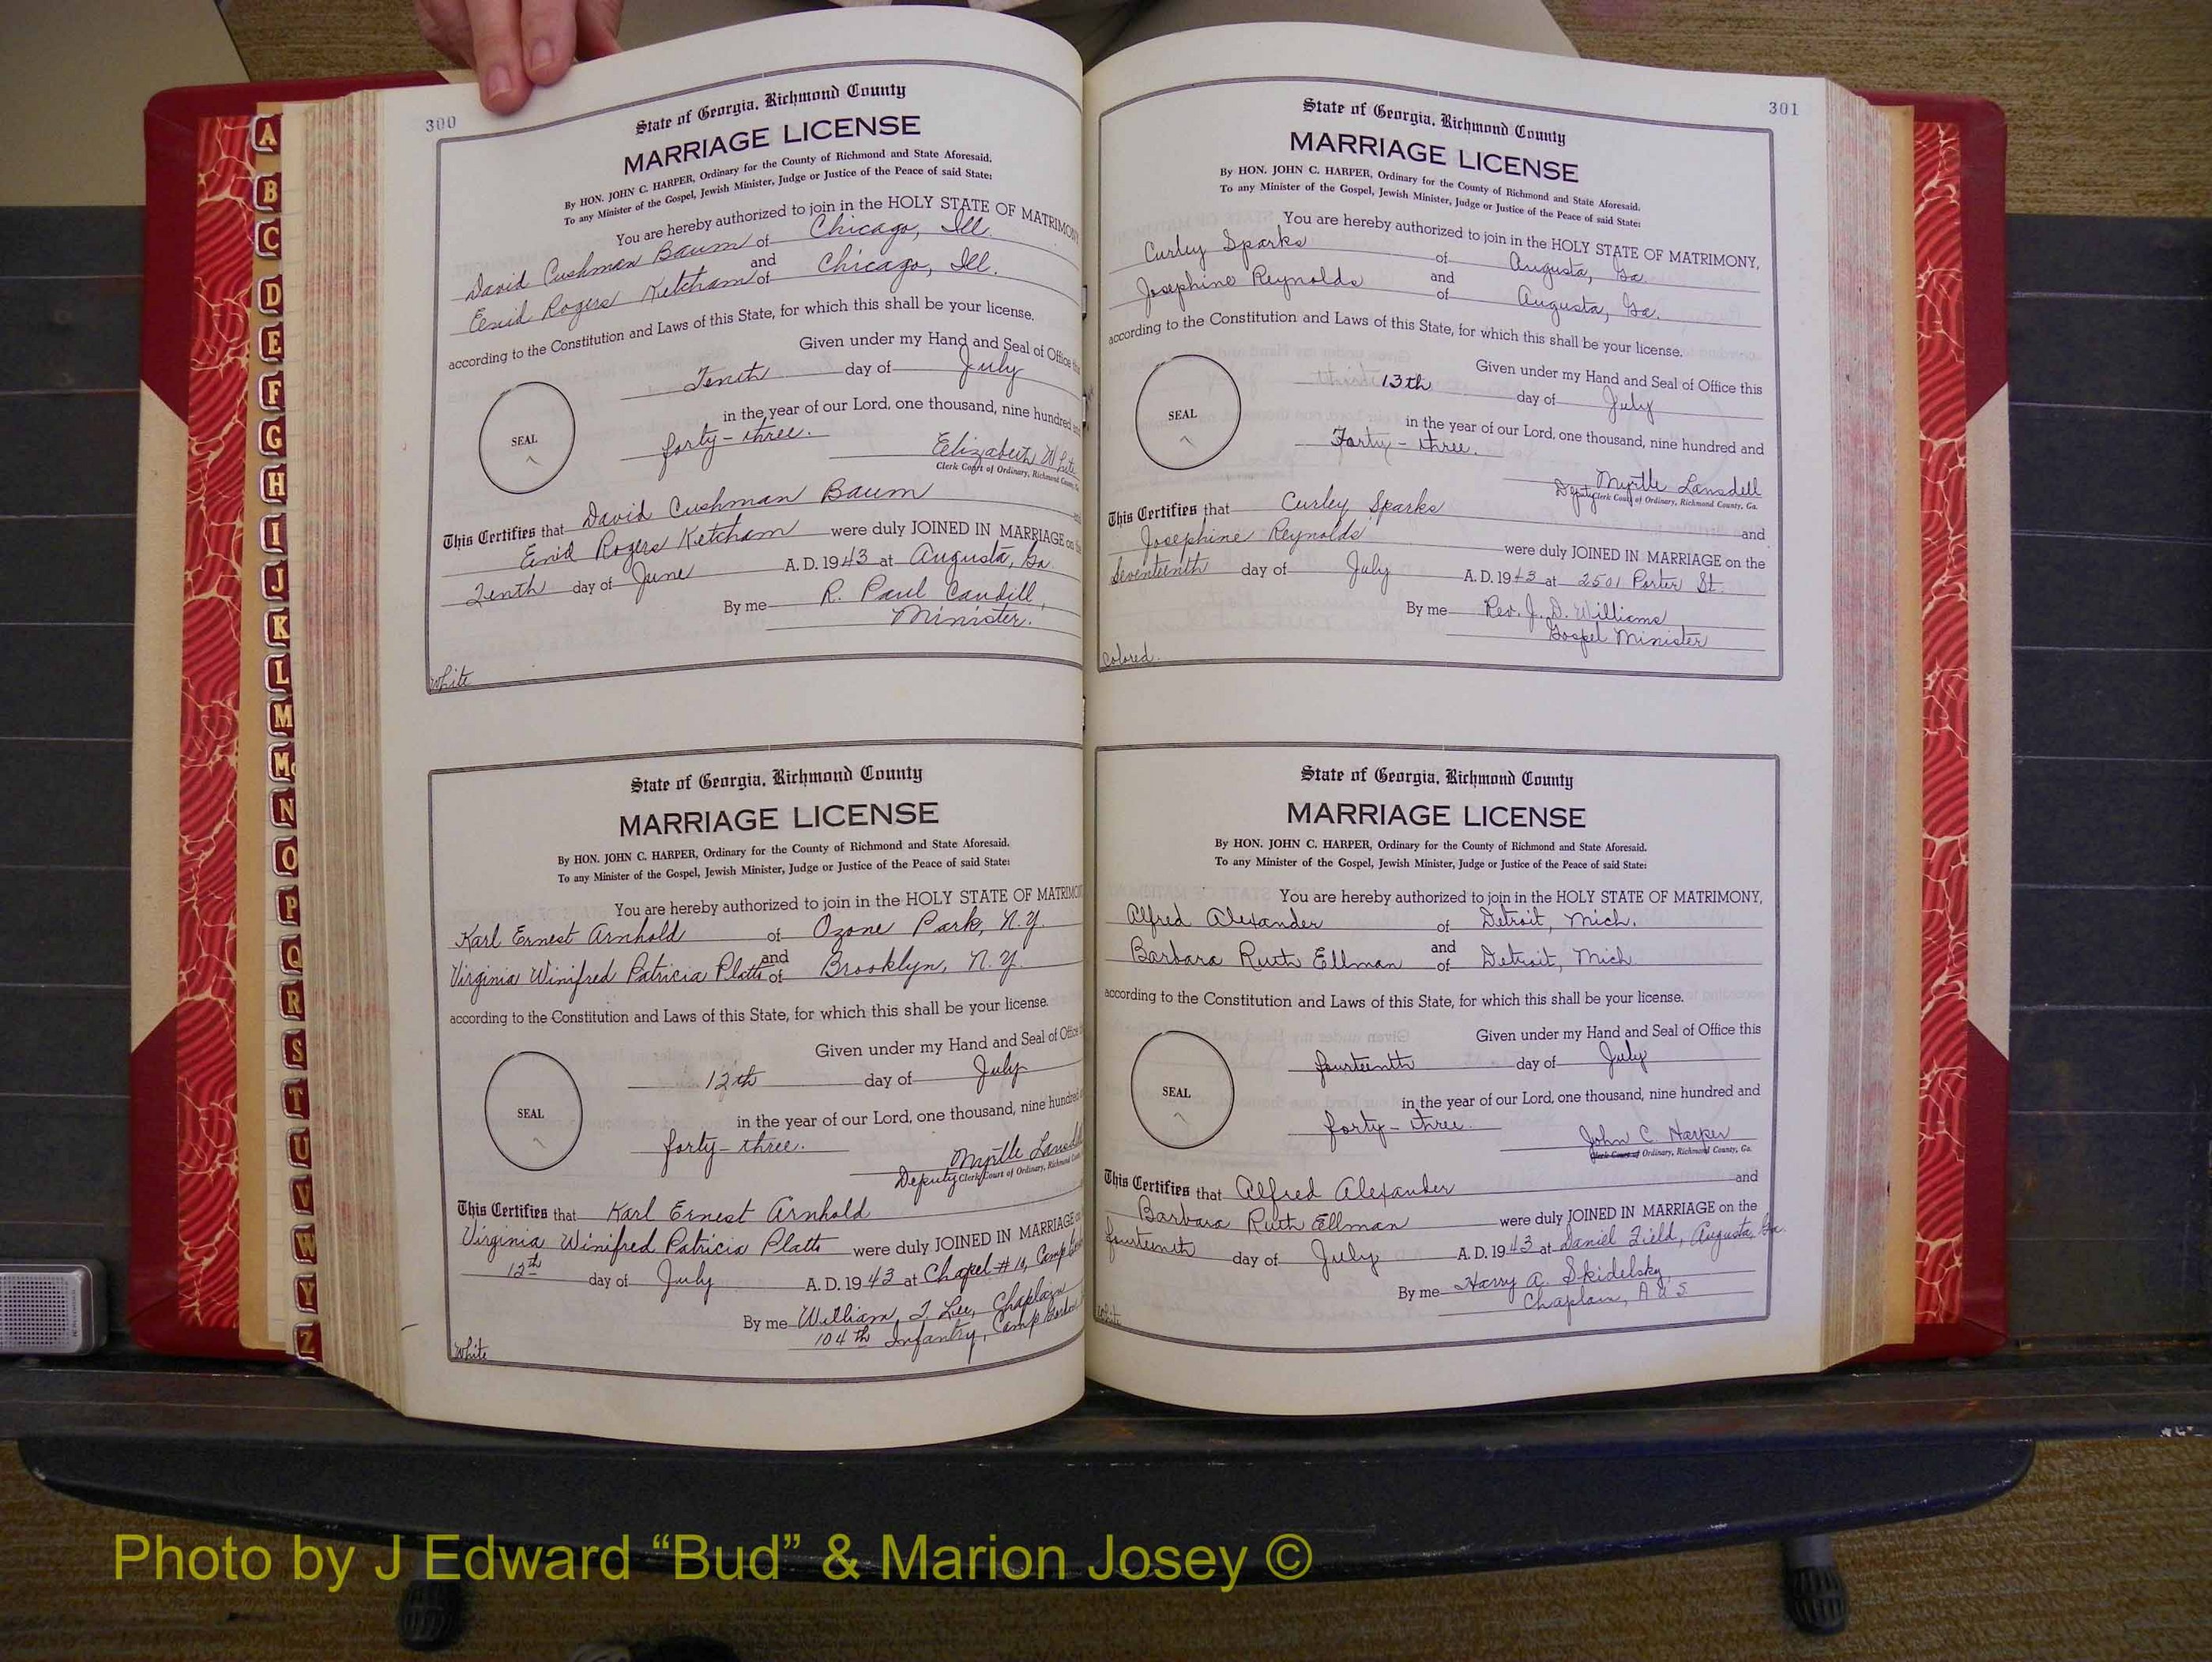 A
B
C
D
E
F
G
H
I
J
K
L
M
Mc
N
O
P
Q
R
S
T
U
V
W
Y
Z
300
State of Georgia, Richmond County
MARRIAGE LICENSE
By HON. JOHN C. HARPER, Ordinary for the County of Richmond and State Aforesaid.
To any Minister of the Gospel, Jewish Minister, Judge or Justice of the Peace of said State:
You are hereby authorized to join in the HOLY STATE OF MATRIMONY
David Cushman Baum of Chicago, Ill.
and
Enid Rogers Ketcham of Chicago, Ill.
according to the Constitution and Laws of this State, for which this shall be your license.
Given under my Hand and Seal of Office this
Tenth day of July
in the year of our Lord, one thousand, nine hundred and
forty-three.
SEAL
Elizabeth White
Clerk Court of Ordinary, Richmond County, Ga.
This Certifies that David Cushman Baum and
Enid Rogers Ketcham were duly JOINED IN MARRIAGE on the
Tenth day of June A. D. 1943 at Augusta, Ga.
By me R. Paul Caudill,
Minister.
White
State of Georgia, Richmond County
MARRIAGE LICENSE
By HON. JOHN C. HARPER, Ordinary for the County of Richmond and State Aforesaid.
To any Minister of the Gospel, Jewish Minister, Judge or Justice of the Peace of said State:
You are hereby authorized to join in the HOLY STATE OF MATRIMO
Karl Ernest Arnhold of Ozone Park, N.Y.
and
Virginia Winifred Patricia Platts of Brooklyn, N.Y.
according to the Constitution and Laws of this State, for which this shall be your license.
Given under my Hand and Seal of Office
12th day of July
in the year of our Lord, one thousand, nine hundred
forty-three.
SEAL
Myrtle Lansdell
Deputy Clerk Court of Ordinary, Richmond County
This Certifies that Karl Ernest Arnhold
Virginia Winifred Patricia Platts were duly JOINED IN MARRIAGE
12th day of July A. D. 1943 at Chapel #11, Camp
By me William J. Lee, Chaplain
104th Infantry, Camp Gordon
White
301
State of Georgia, Richmond County
MARRIAGE LICENSE
By HON. JOHN C. HARPER, Ordinary for the County of Richmond and State Aforesaid.
To any Minister of the Gospel, Jewish Minister, Judge or Justice of the Peace of said State:
You are hereby authorized to join in the HOLY STATE OF MATRIMONY,
Curley Sparks of Augusta, Ga.
and
Josephine Reynolds of Augusta, Ga.
according to the Constitution and Laws of this State, for which this shall be your license.
Given under my Hand and Seal of Office this
13th day of July
in the year of our Lord, one thousand, nine hundred and
Forty-three.
SEAL
Myrtle Lansdell
Deputy Clerk Court of Ordinary, Richmond County, Ga.
This Certifies that Curley Sparks and
Josephine Reynolds were duly JOINED IN MARRIAGE on the
Seventeenth day of July A. D. 1943 at 2501 Porter St.
By me Rev. J. D. Williams
Gospel Minister
Colored.
State of Georgia, Richmond County
MARRIAGE LICENSE
By HON. JOHN C. HARPER, Ordinary for the County of Richmond and State Aforesaid.
To any Minister of the Gospel, Jewish Minister, Judge or Justice of the Peace of said State:
You are hereby authorized to join in the HOLY STATE OF MATRIMONY,
Alfred Alexander of Detroit, Mich.
and
Barbara Ruth Ellman of Detroit, Mich
according to the Constitution and Laws of this State, for which this shall be your license.
Given under my Hand and Seal of Office this
fourteenth day of July
in the year of our Lord, one thousand, nine hundred and
forty-three.
SEAL
John C. Harper
Clerk Court of Ordinary, Richmond County, Ga.
This Certifies that Alfred Alexander and
Barbara Ruth Ellman were duly JOINED IN MARRIAGE on the
fourteenth day of July A. D. 1943 at Daniel Field, Augusta, Ga.
By me Harry A. Skidelsky,
Chaplain, A U S
White
Photo by J Edward “Bud” & Marion Josey ©